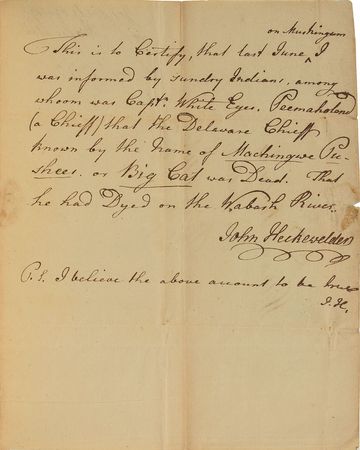 on Muskingum
This is to Certify, that last June ^ I
was informed by sundry Indians, among
whoom was Capt. White Eyes, Peemaholend
(a Chieff) that the Delaware Chieff
known by the Name of Machingwe Pu-
shees. or Big Cat was Dead. That
he had Dyed on the Wabash River.
John Heckewelder
P.S. I believe the above account to be true
J.H.